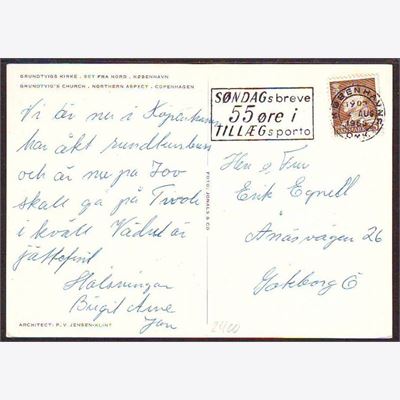 GRUNDTVIGS KIRKE . SET FRA NORD . KØBENHAVN
GRUNDTVIG'S CHURCH . NORTHERN ASPECT . COPENHAGEN
Vi är nu i Köpenhamn
har åkt rundtursbuss
och är nu på Zoo
skall gå på Tivoli
i kväll Vädret är
jättefint
Hälsningar
Birgit Arne
Jan
ARCHITECT: P. V. JENSEN-KLINT
FOTO: JONALS & CO
SØNDAGsbreve
55 øre i
TILLÆGsporto
KØBENHAVN
AUG
DANMARK
Herr o. Fru
Erik Egnell
Anäsvägen 26
Göteborg Ö